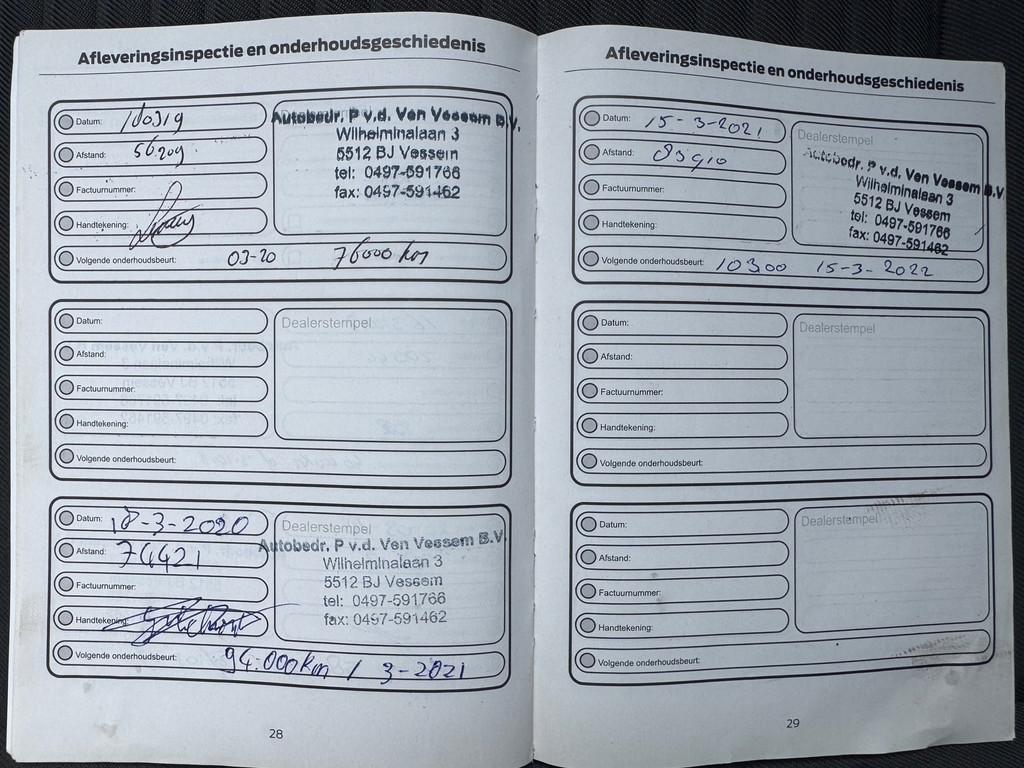 Afleveringsinspectie en onderhoudsgeschiedenis
Datum:
Afstand: 56.209
Factuurnummer:
Handtekening:
Volgende onderhoudsbeurt: 03-20 76000 km
Autobedr. P v.d. Ven Vessem B.V.
Wilhelminalaan 3
5512 BJ Vessem
tel: 0497-591766
fax: 0497-591462
Datum:
Afstand:
Factuurnummer:
Handtekening:
Volgende onderhoudsbeurt:
Dealerstempel:
Datum: 18-3-2020
Afstand: 74421
Factuurnummer:
Handtekening:
Volgende onderhoudsbeurt: 94.000km / 3-2021
Dealerstempel
Autobedr. P v.d. Ven Vessem B.V.
Wilhelminalaan 3
5512 BJ Vessem
tel: 0497-591766
fax: 0497-591462
28
Afleveringsinspectie en onderhoudsgeschiedenis
Datum: 15-3-2021
Afstand:
Factuurnummer:
Handtekening:
Volgende onderhoudsbeurt: 10300 15-3-2022
Dealerstempel
Autobedr. P v.d. Ven Vessem B.V.
Wilhelminalaan 3
5512 BJ Vessem
tel: 0497-591766
fax: 0497-591462
Datum:
Afstand:
Factuurnummer:
Handtekening:
Volgende onderhoudsbeurt:
Dealerstempel
Datum:
Afstand:
Factuurnummer:
Handtekening:
Volgende onderhoudsbeurt:
Dealerstempel
29